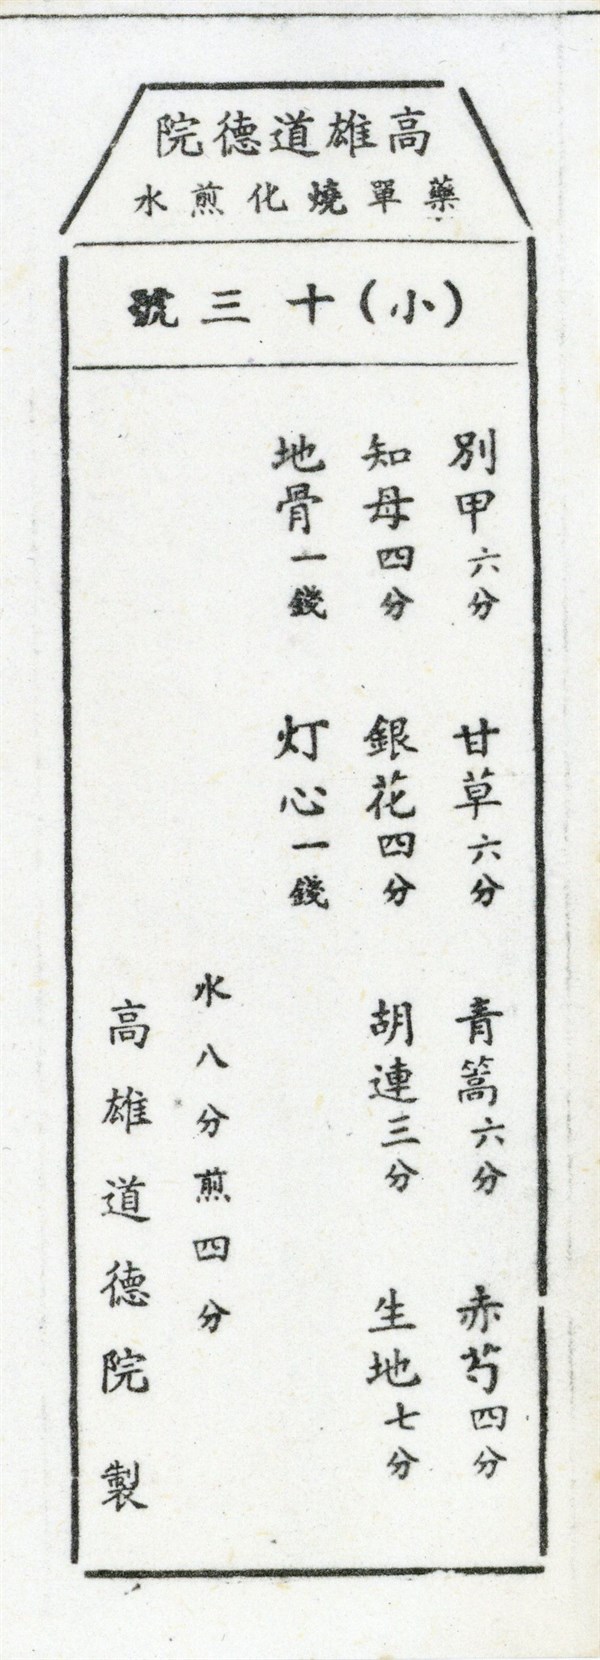 高雄道德院
藥單燒化煎水
(小)十三號
別甲六分 甘草六分 青篙六分 赤芍四分
知母四分 銀花四分 胡連三分 生地七分
地骨一錢 灯心一錢
水八分煎四分
高雄道德院 製